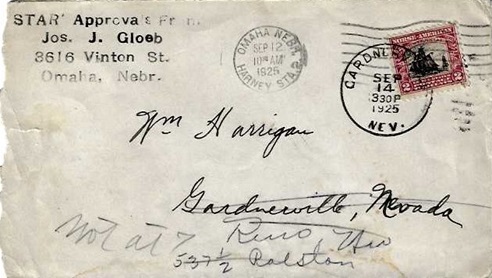 STAR' Approvals From
Jos. J. Gloeb
3616 Vinton St.
Omaha, Nebr.
OMAHA NEBR.
SEP 12
10 AM
1925
HARNEY STA.
GARDNE
SEP
14
330P
1925
NEV.
NORSE-AMERICAN
2 2
Wm Harrigan
Gardnerville, Nevada
Not at
Reno, Nev
537 1/2 Ralston